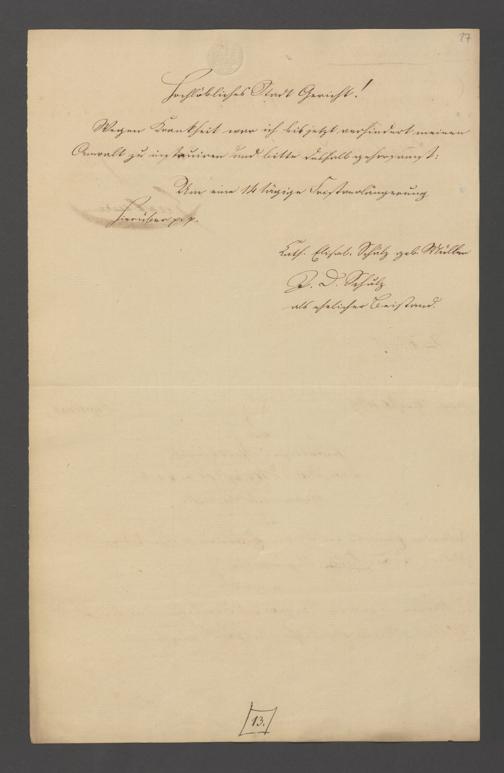 17
Hochlöbliches Stadt Gericht!
Wegen Krankheit war ich bis jetzt verhindert meinen
Anwalt zu instruiren und bitte deshalb gehorsamst:
Um eine 14 tägige Fristverlängerung
Hierüber pp.
Cath. Elisab. Schulz geb. Müller
D. Schulz
als ehelicher Beistand.
13.